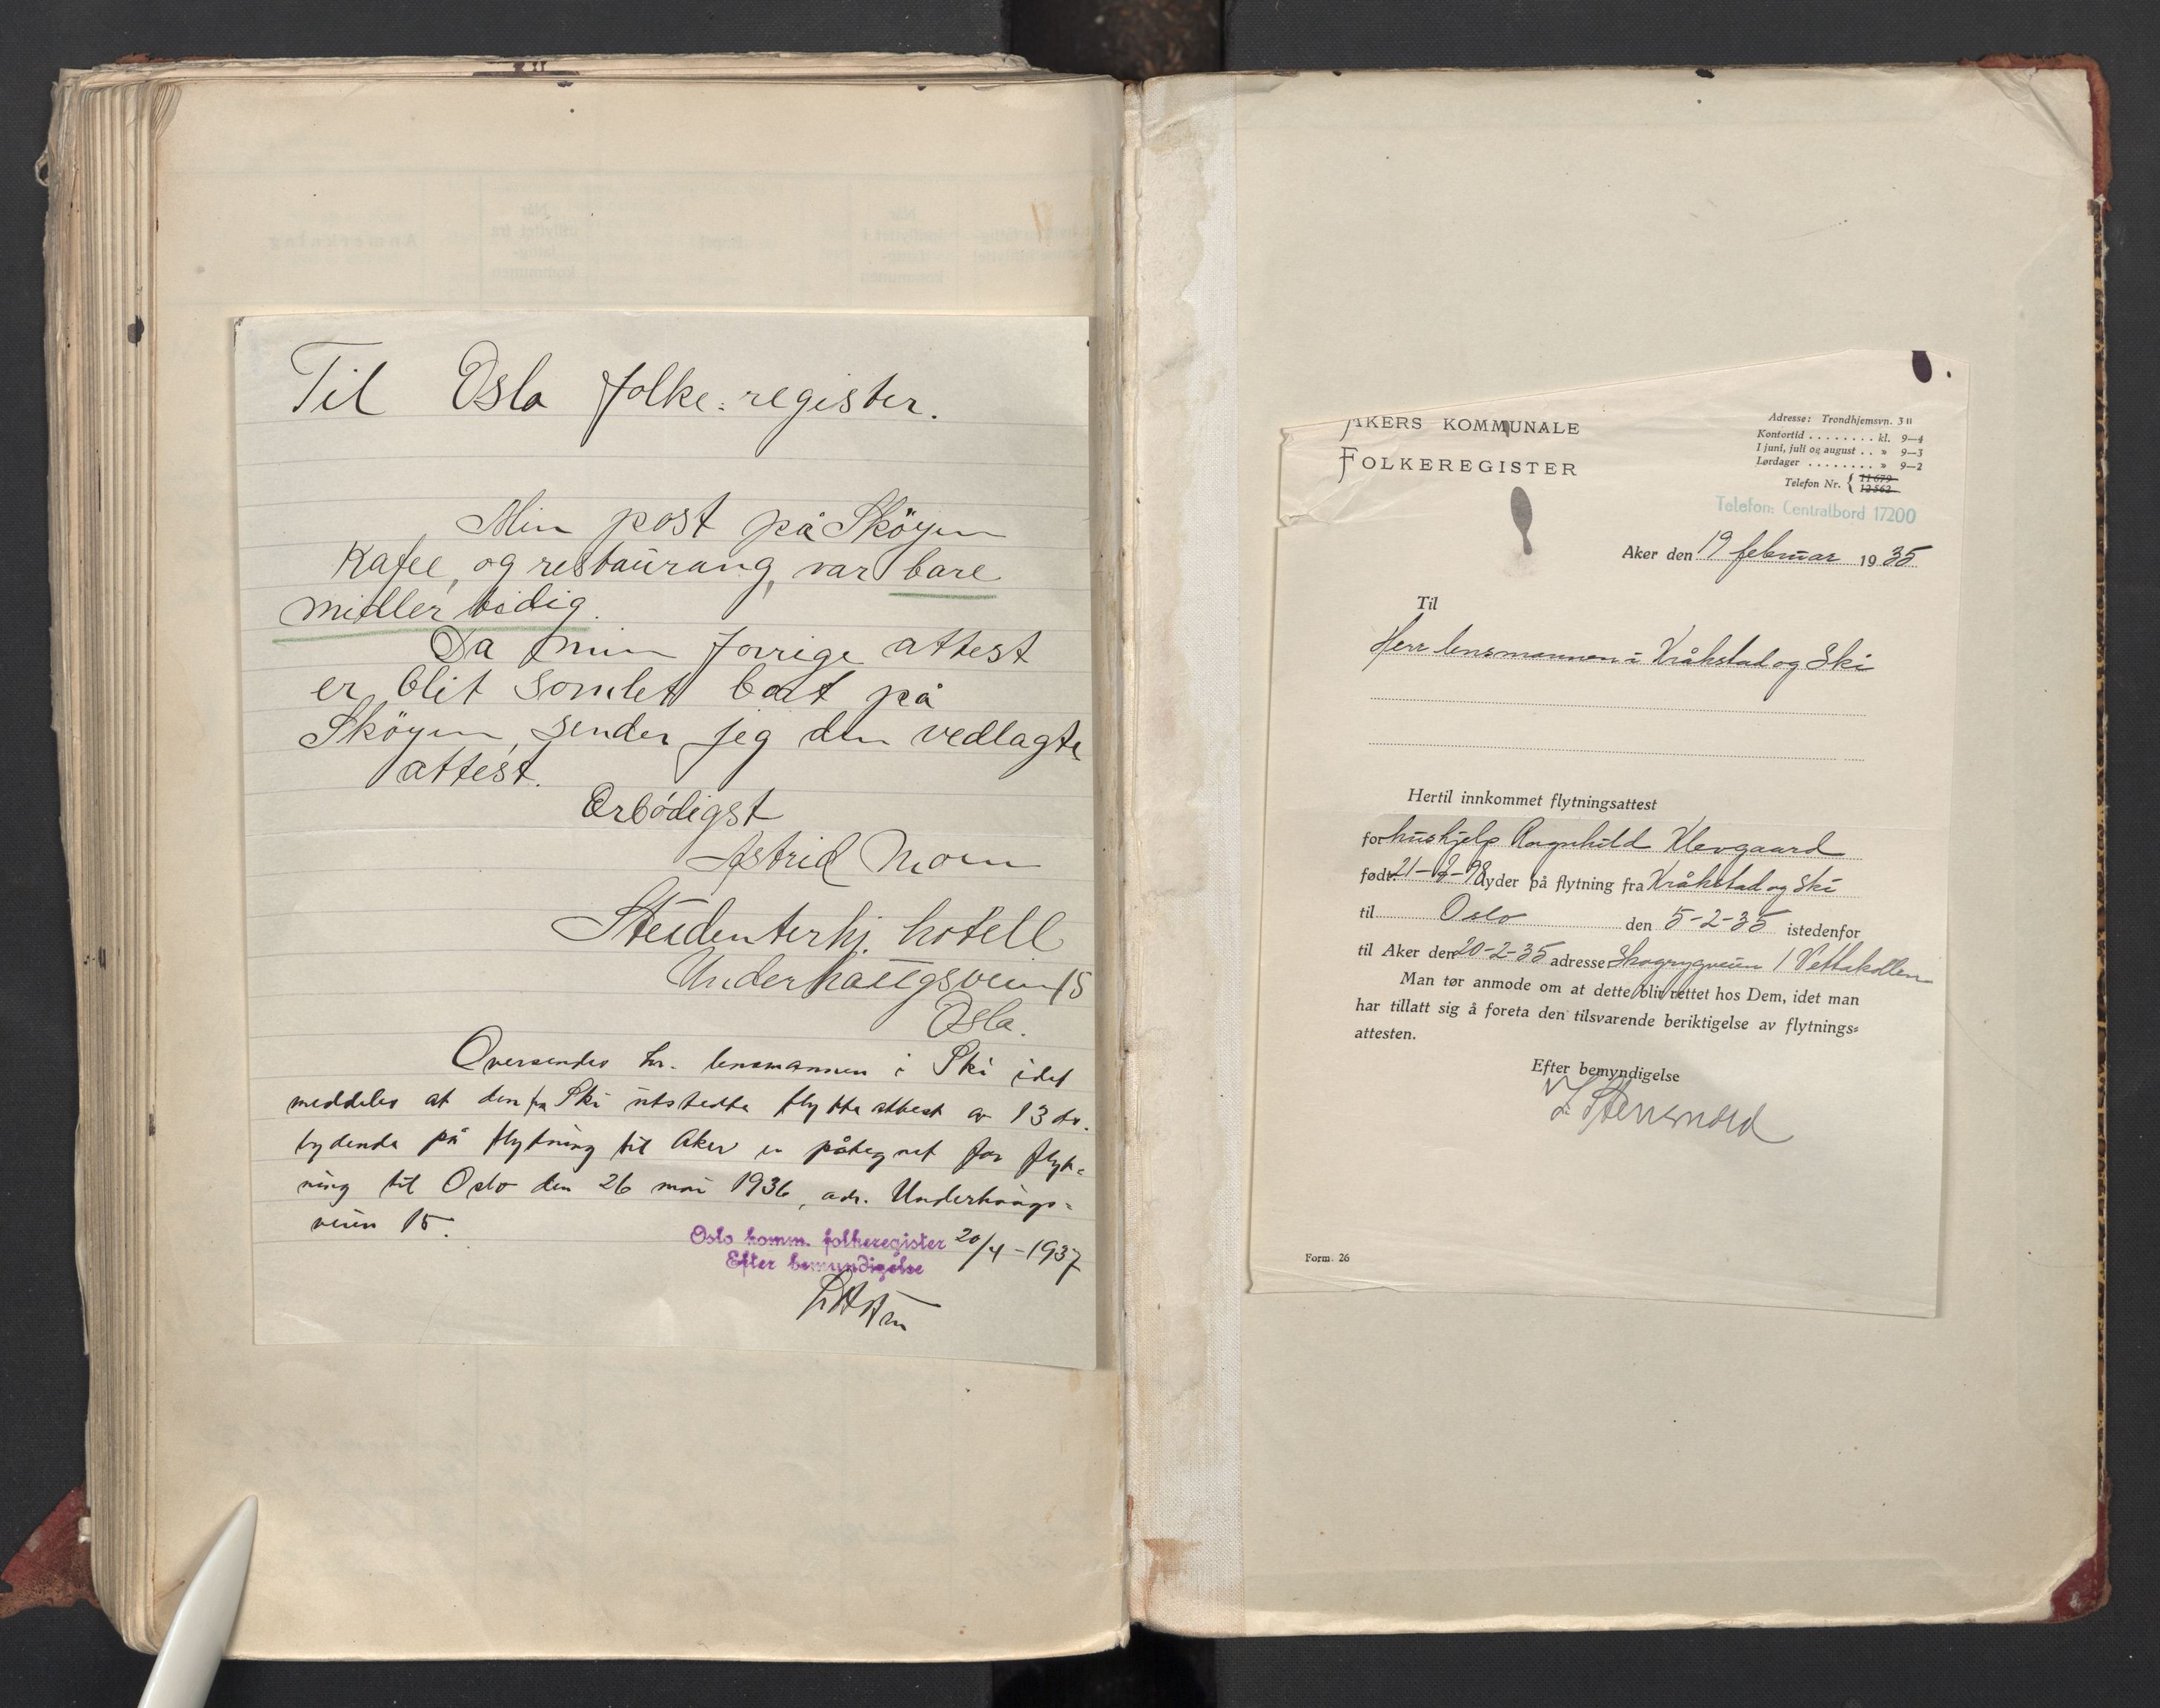 Til Oslo folke-register.
Min post på Sköyen
Kafee, og restaurang, var bare
midler tidig.
Da min forrige attest
er blit somlet bort på
Sköyen, sender jeg den vedlagte
attest.
Ærbödigst
Astrid Moen
Studenterhj. hotell
Underhaugsveien 15
Oslo.
Oversendes hr. lensmannen i Ski idet
meddeles at den fra Ski utstedte flytteattest av 13 ds.
lydende på flytning til Aker er påtegnet for flyt-
ning til Oslo den 26 mai 1936, adr. Underhaugs-
veien 15.
Oslo komm. folkeregister 20/4-1937
Efter bemyndigelse
AKERS KOMMUNALE
FOLKEREGISTER
Adresse: Trondhjemsvn. 3 II
Kontortid ........ kl. 9—4
I juni, juli og august .. » 9—3
Lørdager ........ » 9—2
Telefon Nr. { 11679
12562
Telefon: Centralbord 17200
Aker den 19 februar 1935
Til
Herr lensmannen i Kråkstad og Ski
Hertil innkommet flytningsattest
for hushjelp Ragnhild Klevgaard
født 21-2-98 lyder på flytning fra Kråkstad og Ski
til Oslo den 5-2-35 istedenfor
til Aker den 20-2-35 adresse Skogrygveien 1 Vettakollen
Man tør anmode om at dette blir rettet hos Dem, idet man
har tillatt sig å foreta den tilsvarende beriktigelse av flytnings-
attesten.
Efter bemyndigelse
Stensnord
Form. 26